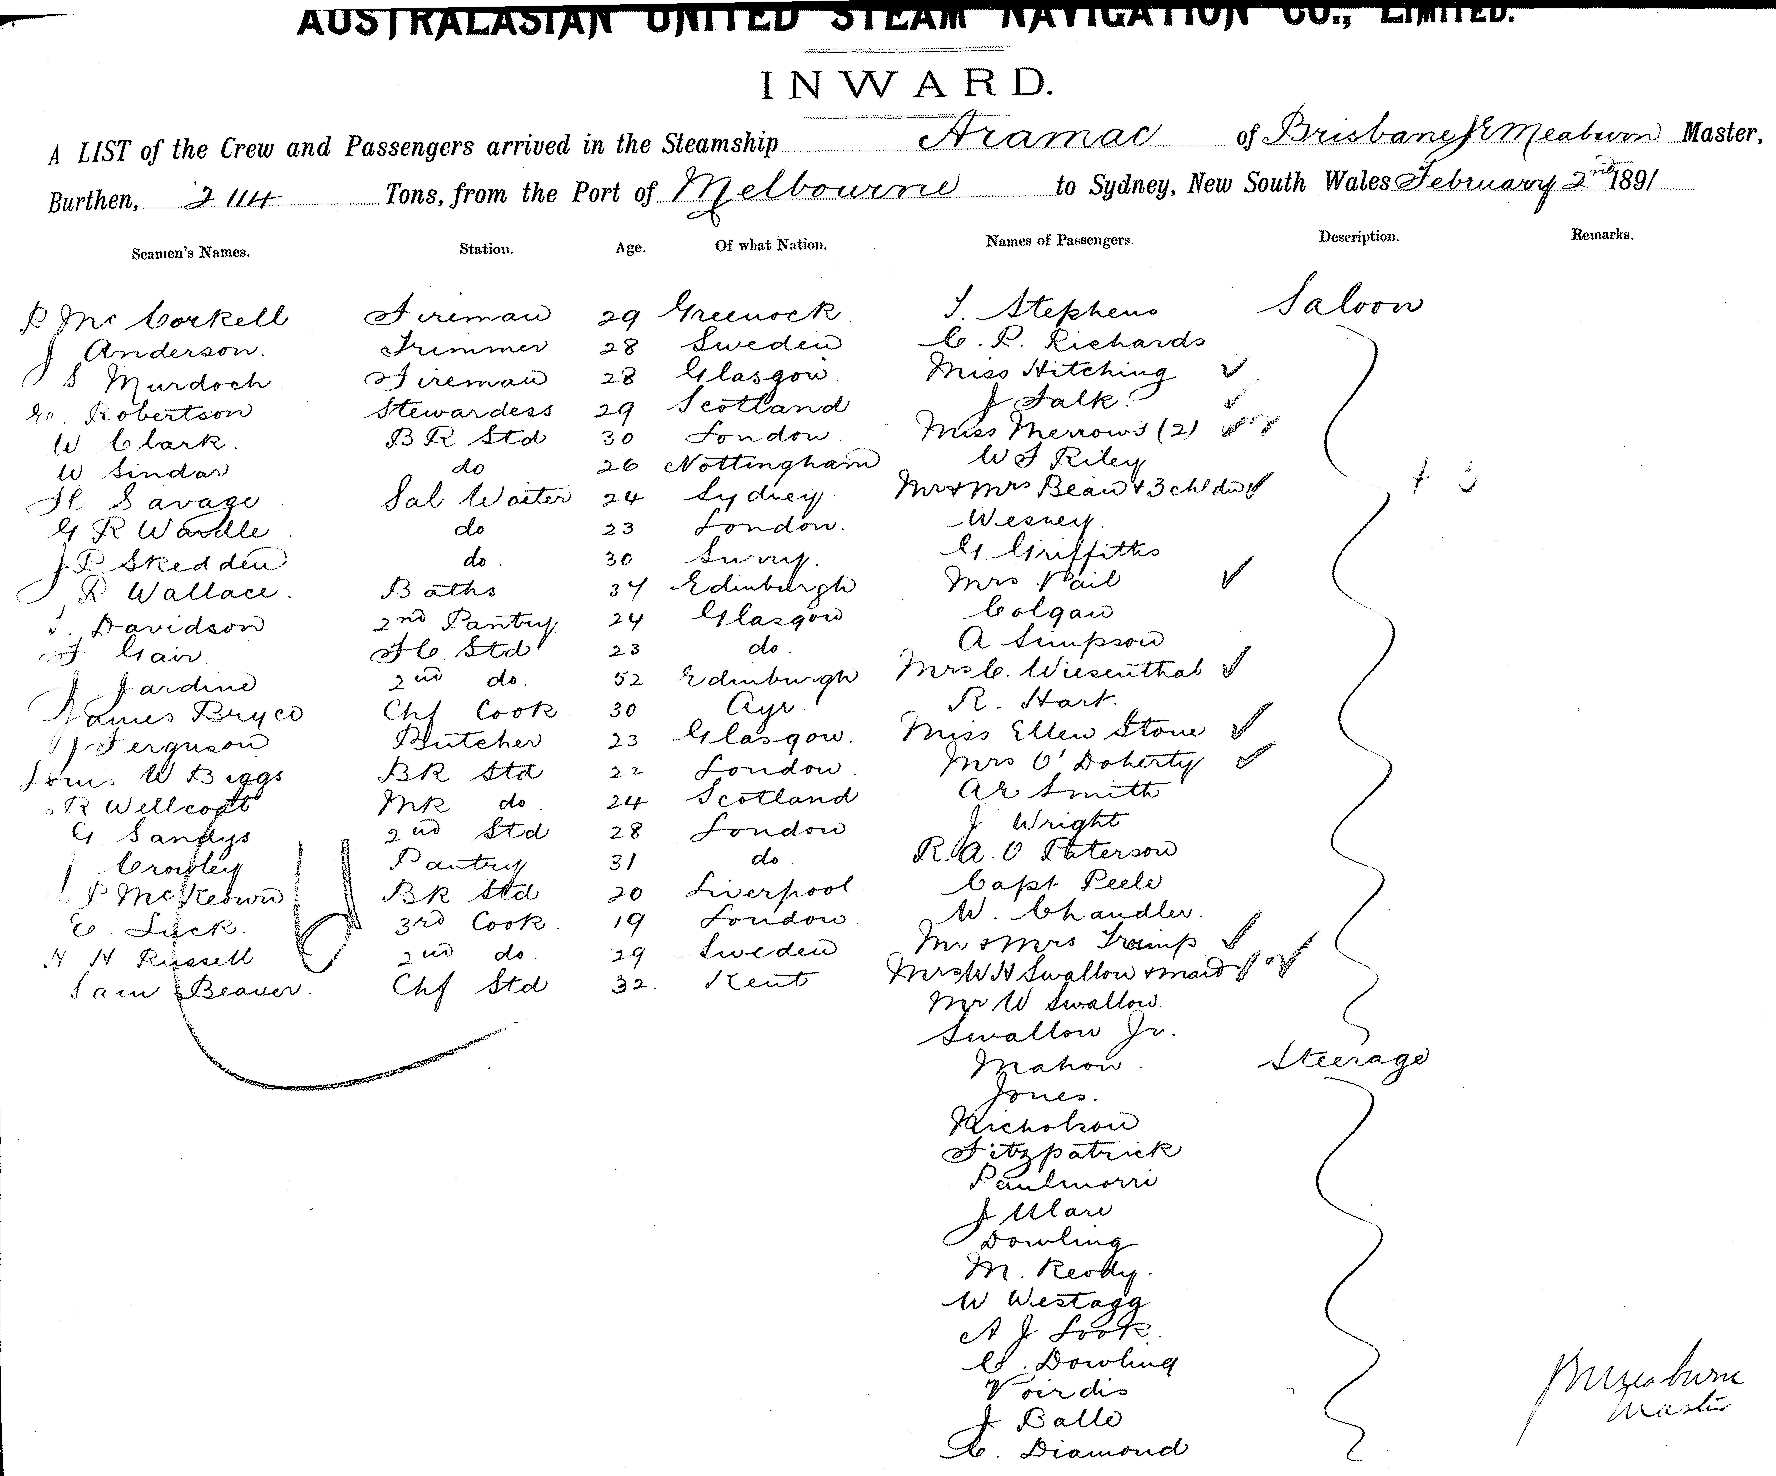 AUSTRALASIAN UNITED STEAM NAVIGATION CO., LIMITED.
INWARD.
A LIST of the Crew and Passengers arrived in the Steamship Aramac of Brisbane Meaburn Master,
Burthen, 2114 Tons, from the Port of Melbourne to Sydney, New South Wales February 2nd 1891
Seamen's Names. Station. Age. Of what Nation. Names of Passengers. Description. Remarks.
P McCorkell Fireman 29 Greenock J. Stephens Saloon
J Anderson. Trimmer 28 Sweden C. R. Richards
S Murdoch Fireman 28 Glasgow Miss Hitching ✓
Robertson Stewardess 29 Scotland J Falk. ✓
W Clark. B R Std 30 London. Miss Merrows (2) ✓✓
W Sindar do 26 Nottingham W S Riley
H Savage Sal Waiter 24 Sydney. Mr & Mrs Bean & 3 chldn ✓
G R Wardle do 23 London. Wesney.
J P Skedden do. 30 Surry. G Griffiths
R Wallace. Baths 37 Edinburgh Mrs Vail ✓
Davidson 2nd Pantry 24 Glasgow Colgan
Gair FC Std 23 do. A Simpson
J Jardine 2nd do. 52 Edinburgh Mrs C. Wiesenthal ✓
James Bryce Chf Cook 30 Ayr. R. Hart.
J Ferguson Butcher 23 Glasgow. Miss Ellen Stone ✓
W Biggs BR Std 22 London. Mrs O'Doherty ✓
R Wellcoat MR do 24 Scotland AE Smith
G Sandys 2nd Std 28 London J Wright
Crowley Pantry 31 do. R. A. O Paterson
P McKeown BR Std 20 Liverpool Capt Peele
E. Luck. 3rd Cook. 19 London. W. Chandler.
H H Russell 2nd do. 29 Sweden Mr & Mrs Tramp ✓
Sam Beaver. Chf Std 32. Kent Mrs W H Swallow & maid ✓ ✓
Mr W Swallow.
Swallow Jr.
Mahon. Steerage
Jones.
Nicholson
Fitzpatrick
Paulmorri
J Ware
Dowling
M. Reody.
W Westagg
A J Look.
C. Dowling
Voirdis
J Balle
C. Diamond
Meaburn
Master